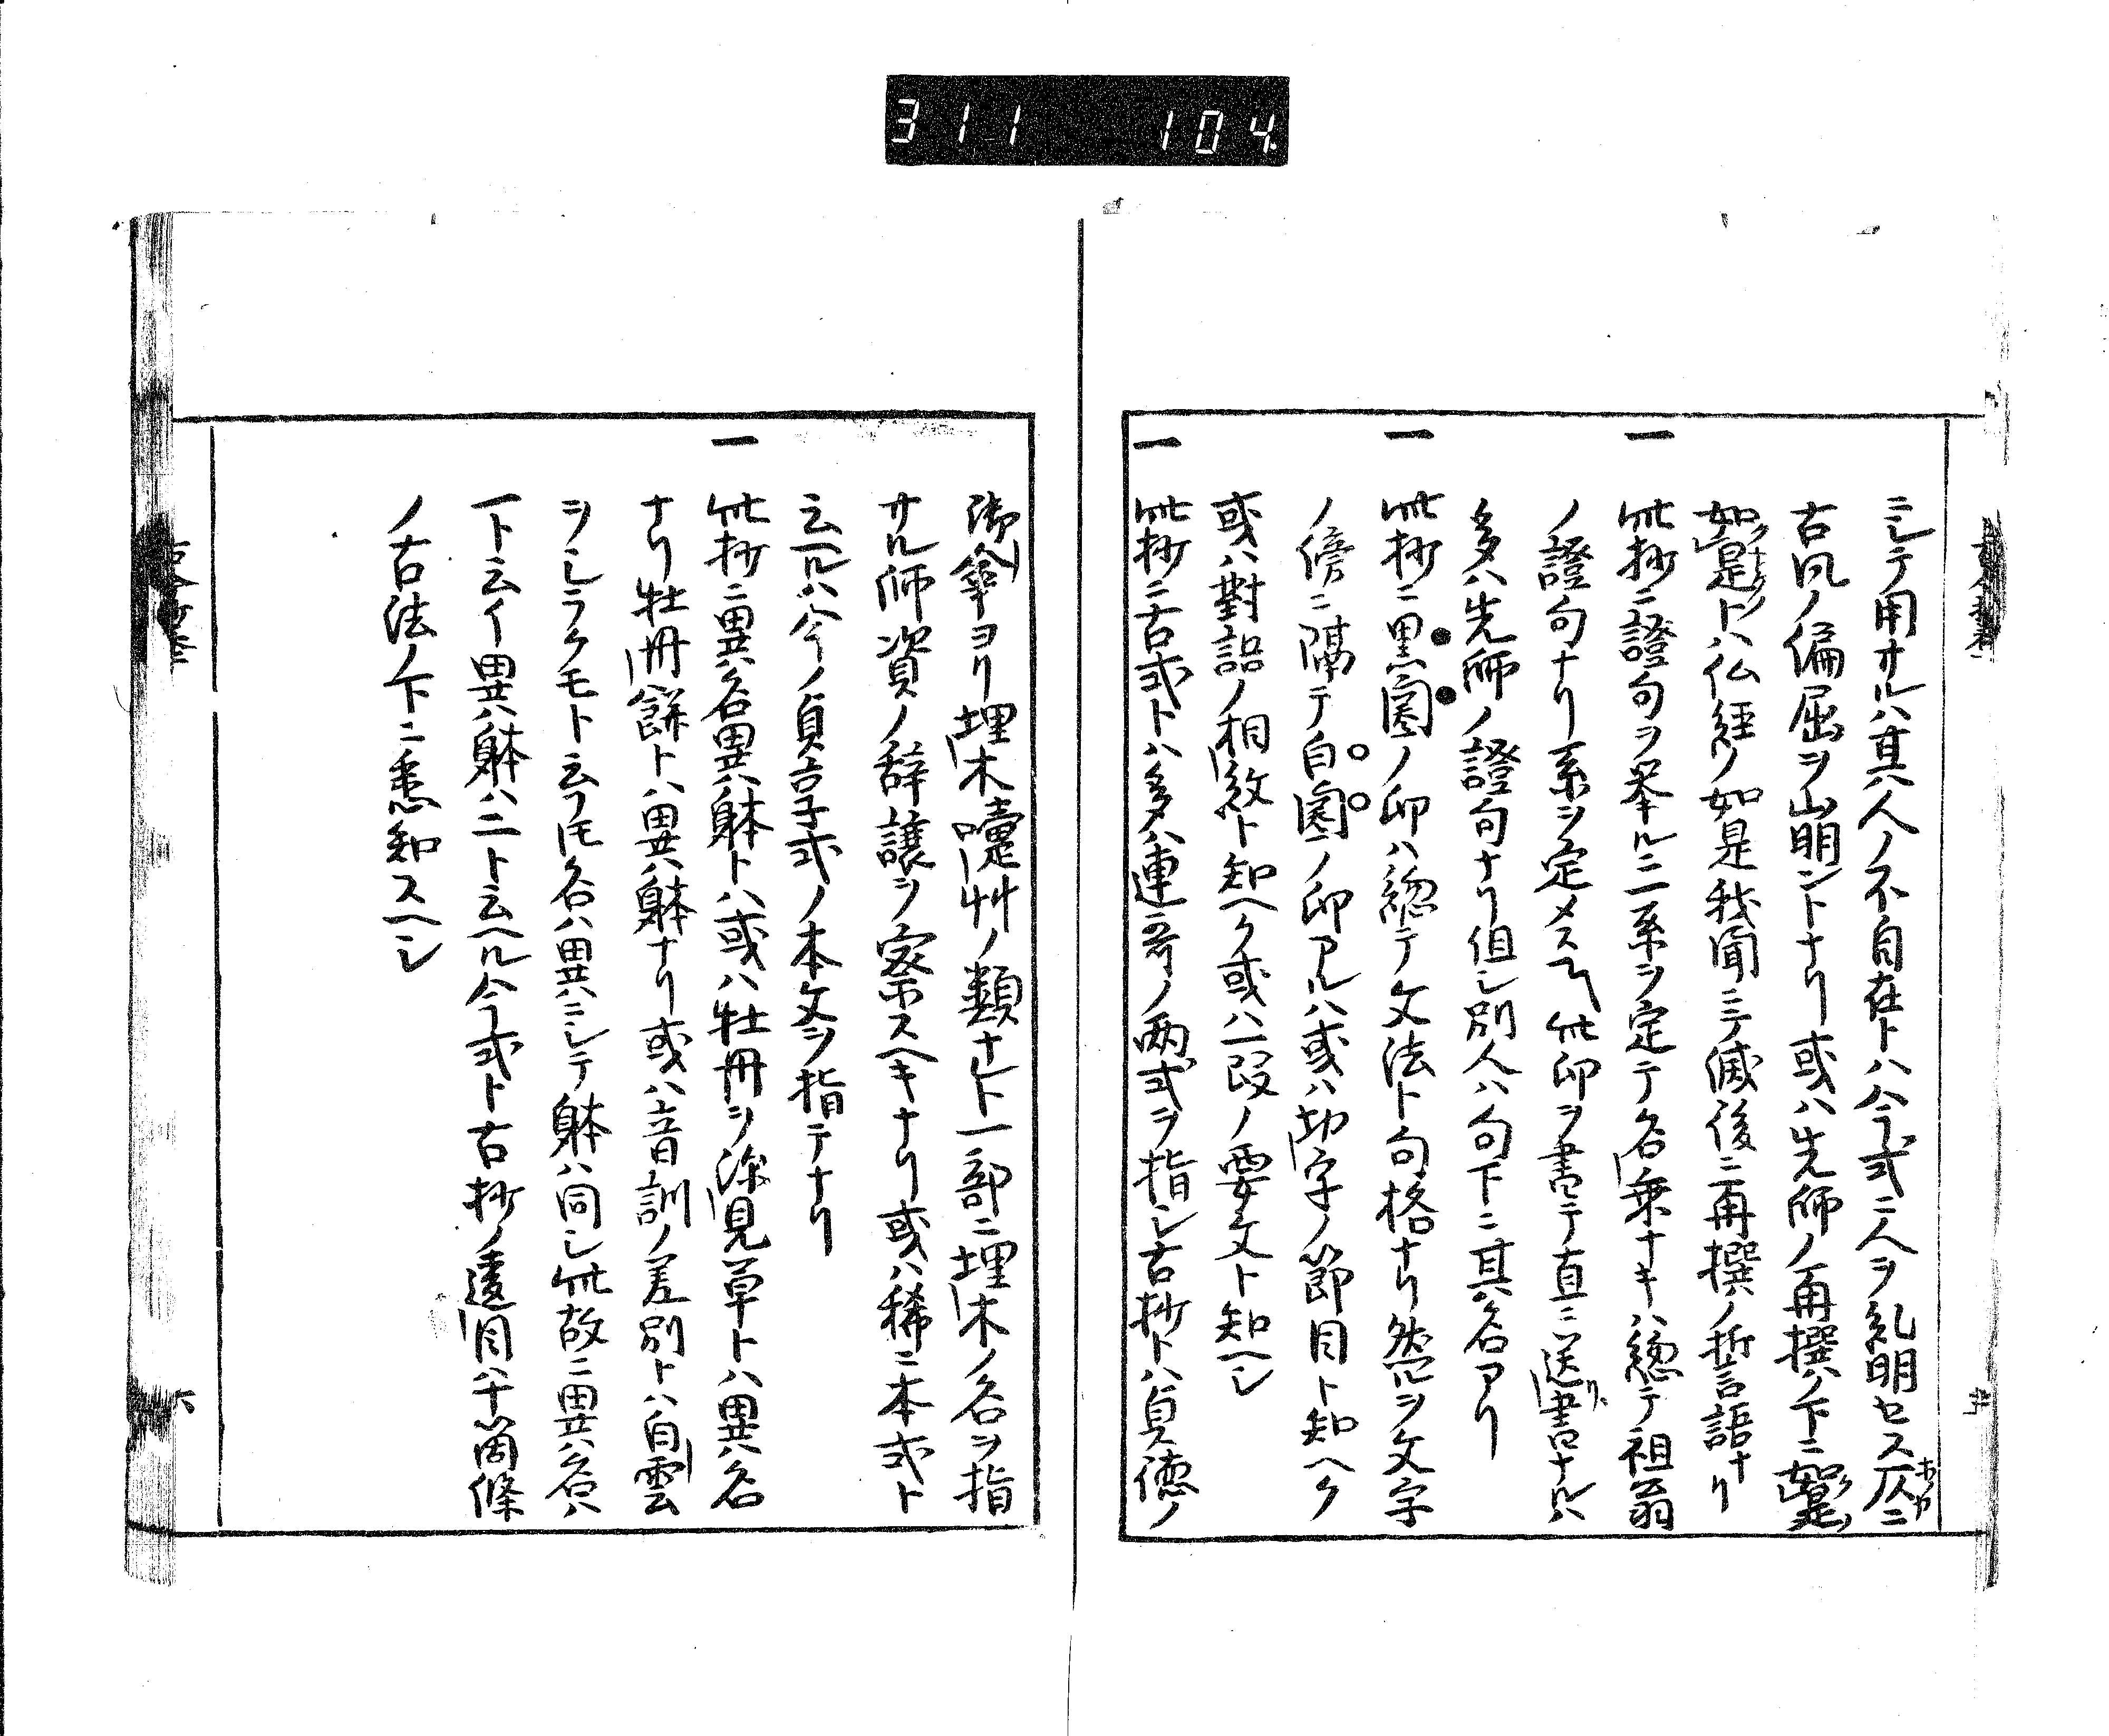 311 104
ニシテ用サルハ其人ノ不自在トハ今式ニ人ヲ糺明セス仄ニ
古風ノ偏屈ヲ山明ントナリ或ハ先師ノ再撰ノ下ニ如是
如是トハ仏経ノ如是我聞ニテ滅後ニ再撰ノ哲言語ナリ
一 此抄ニ證句ヲ挙ルニ二系ヲ定テ名乗ナキハ總テ祖翁
ノ證句ナリ系ヲ定メス〽此印ヲ書テ直ニ送書ナルハ
多ハ先師ノ證句ナリ但シ別人ハ句下ニ其名アリ
一 此抄ニ黒圏ノ印ハ總テ文法ト句格ナリ然ルヲ文字
ノ傍ニ隔テ白圏ノ印アルハ或ハ切字ノ節目ト知ヘク
或ハ對語ノ相紋ト知ヘク或ハ一段ノ要文ト知ヘシ
一 此抄ニ古式トハ多ハ連哥ノ両式ヲ指シ古抄トハ貞徳ノ
御傘ヨリ埋木嚏艸ノ類ナレト一部ニ埋木ノ名ヲ指
サル師資ノ辞譲ヲ察スヘキナリ或ハ稀ニ本式ト
云ヘルハ今ノ貞享式ノ本文ヲ指テナリ
一 此抄ニ異名異躰トハ或ハ牡丹ヲ深見草トハ異名
ナリ牡丹餅トハ異躰ナリ或ハ音訓ノ差別トハ白雲
ヲシラクモト云フ𪜈名ハ異ニシテ躰ハ同シ此故ニ異名ハ
一ト云イ異躰ハ二ト云ヘル今式ト古抄ノ遠目八十箇條
ノ古法ノ下ニ悉知スヘシ
六